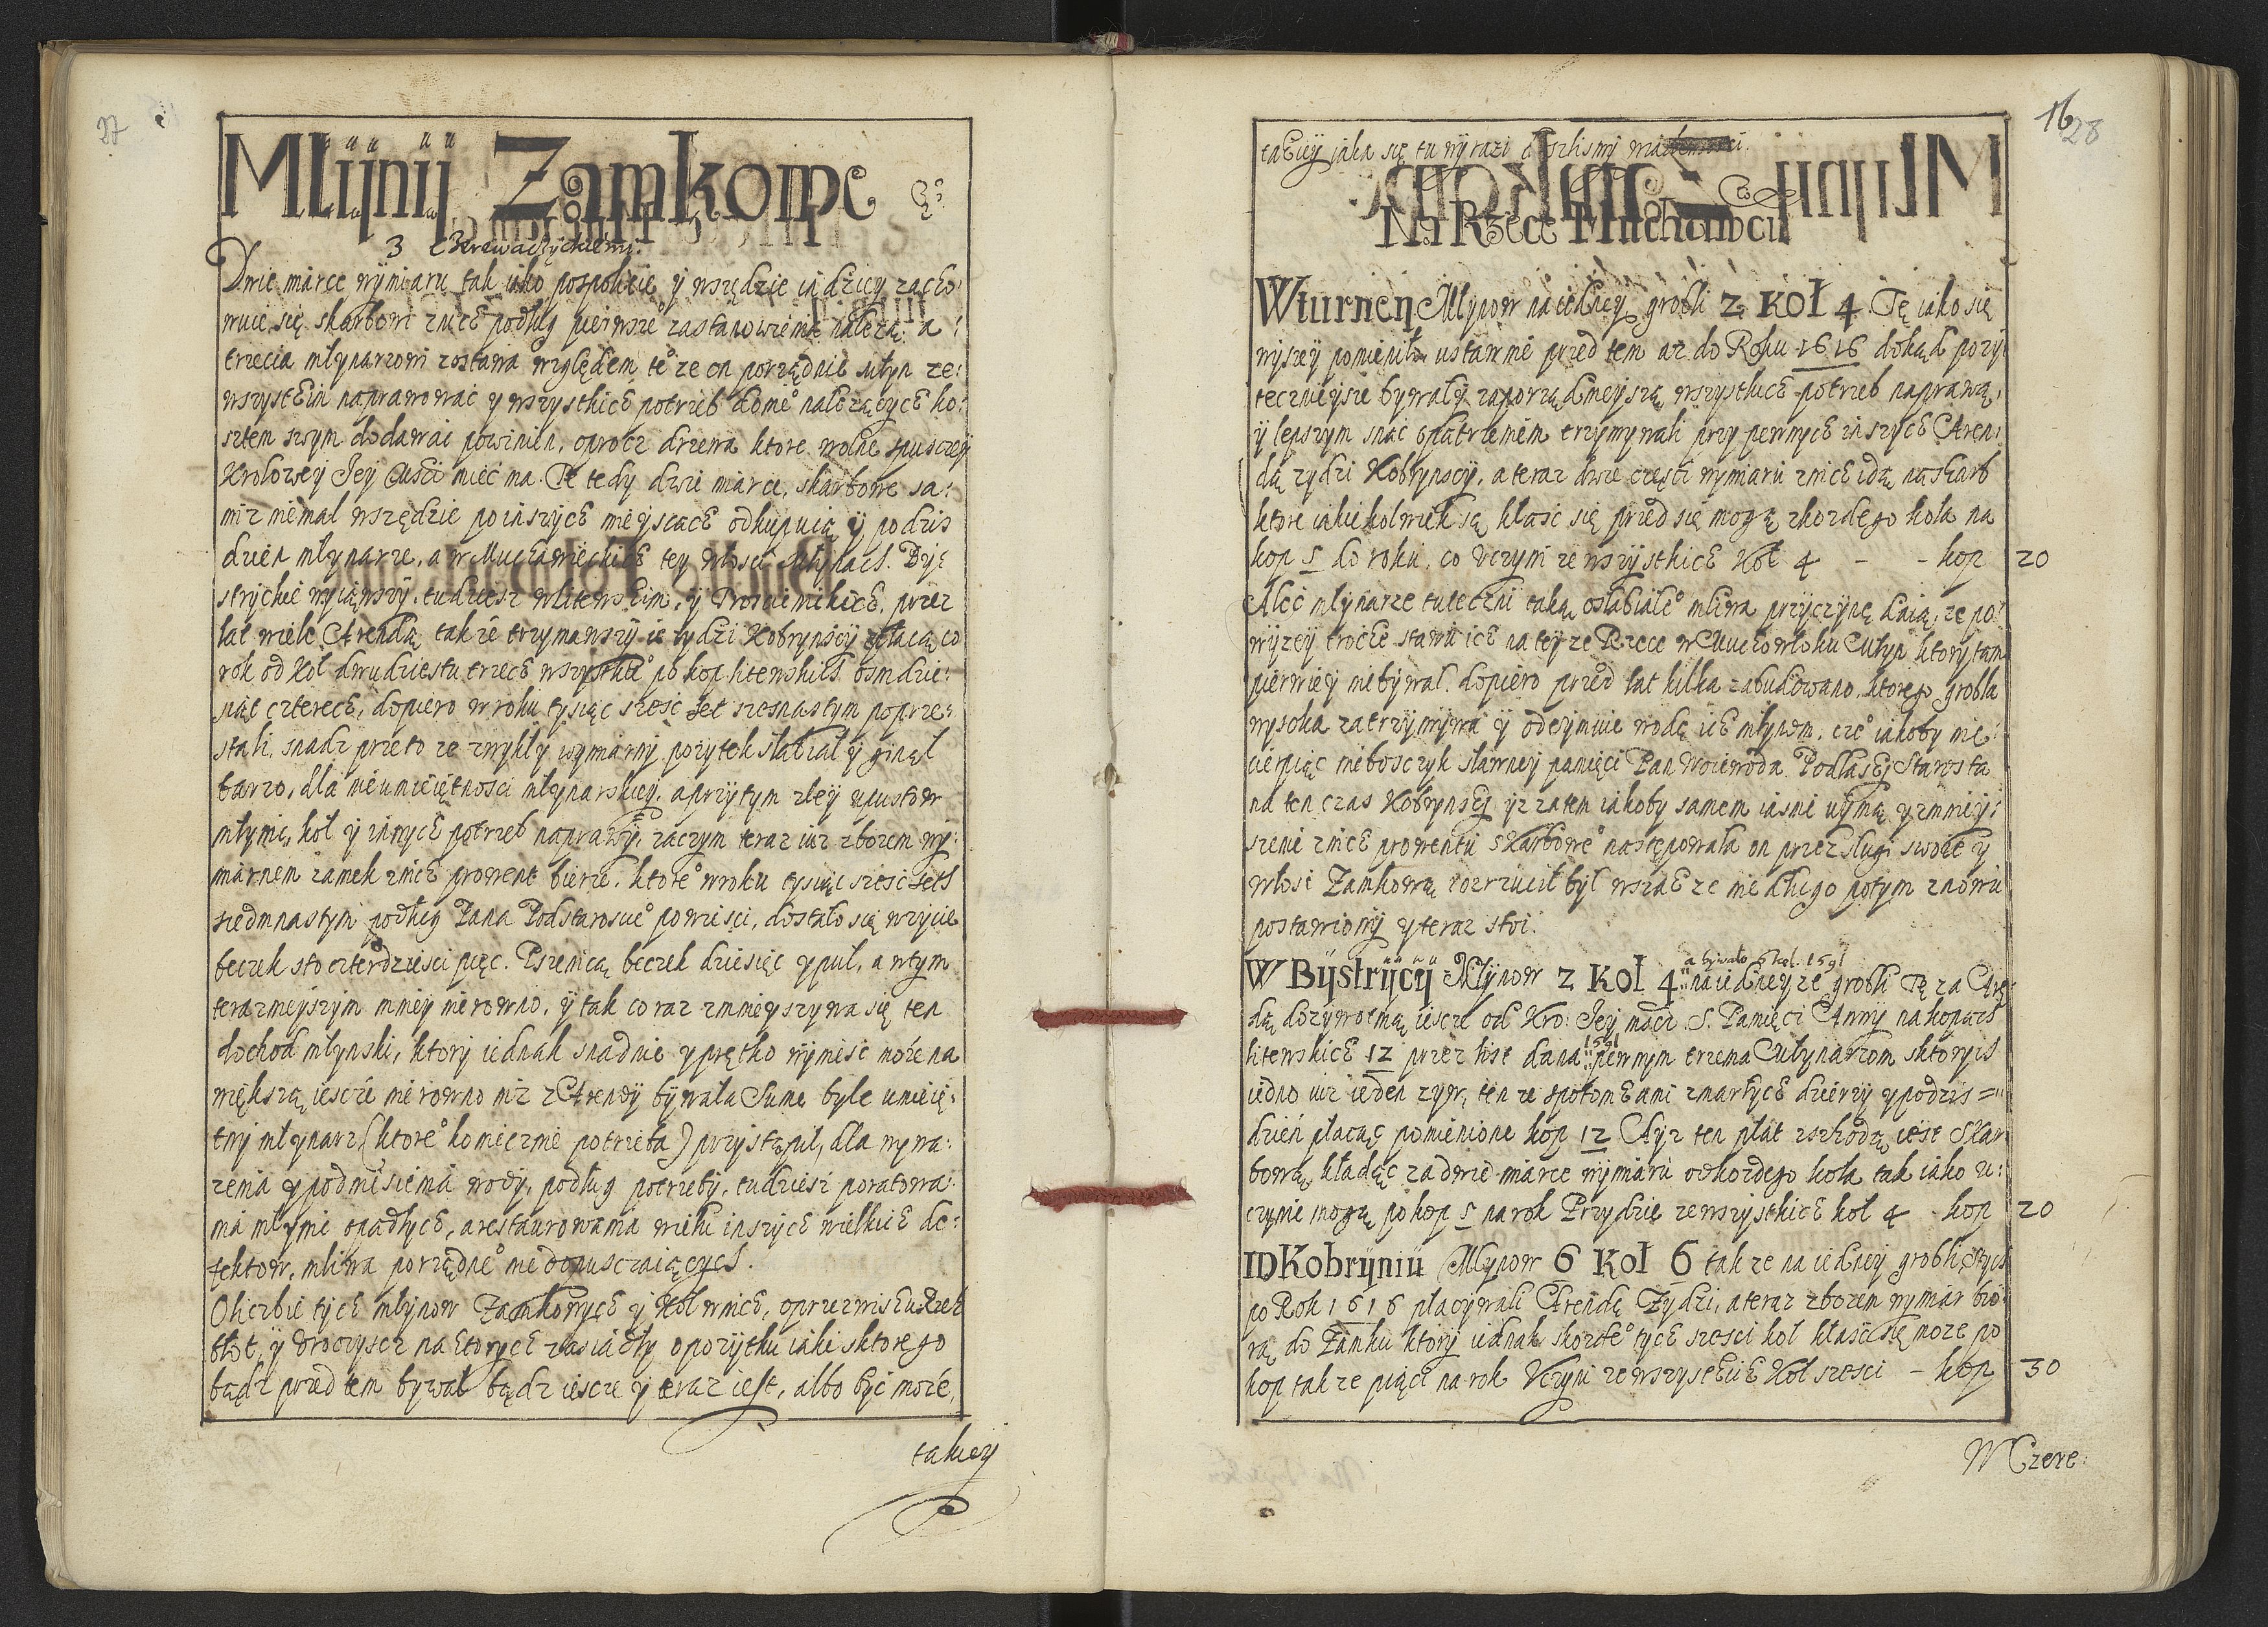 27
Młÿnÿ Zamkowe
3
Dwie miarce wÿmiaru tak iako pospolicie ÿ wszędzie indzieÿ zacho:
wuie się skarbowi znich podług pierwsze° zastanowienia należą: a
trzecia młynarzowi zostawa względem te° że on porządnie młyn ze:
wszystkim naprawować y wszystkich potrzeb do nie° należących ko:
sztem swym dodawać powinien, oprocz drzewa ktore wolne spuszczeÿ
Krolowey Jey Mści mieć ma. Te tedy dwie miarce, skarbowe sa:
mi z niemal wszędzie po inszych mieyscach odkupuią ÿ po dzis
dzień młynarze, a w Muchawieckich tey włości Młynach. By:
strÿckie wyiąwszÿ, tudziesz w Litewskim, ÿ Prosiemikich, przez
lat wiele Arendą także trzymawszÿ ie zydzi Kobrynscÿ płacą co
rok od Koł dwudziestu trzech wszystkie° po kop litewskich osmdzie:
siąt czterech, dopiero w roku tysiąc sześć set szesnastym poprze:
stali, snadz przeto ze zwykły wymiarny pożytek słabiał ÿ ginął
barzo, dla nieumieiętnosci młynarskiey, aprzytym zleÿ upustow
młynie, koł ÿ innych potrzeb naprawÿ, zaczym teraz iuz zbozem wÿ:
miarnem zamek znich prowent bierze. ktore° wroku tysiąc sześć seth
siedmnastym podług Pana Podstarosciе° powiesci, dostało się wzycie
beczek sto czterdziesci pięc. Pszenicą beczek dziesięc ypuł, a wtym
teraznieÿszÿm mnieÿ nierowno, ÿ tak co raz zmnieyszywa się ten
dochod młynski, ktory iednak snadnie yprętko wÿnieść może na
większą iescze nierowno niz z Arendy bywała Sumę byle umieię:
tny młynarz (ktore° koniecznie potrzeba) przystąpił, dla wywa:
zenia ypodniesienia wodÿ, podług potrzebÿ, tudziesz poratowa:
nia młynie opadłych, arestaurowania wielu inszych wielkich de:
fektow, mliwa porządne° niedopusczaiących.
O liczbie tÿch młÿnow Zamkowych ÿ Koł wnich, oprzezwiskach Rzek
błot, ÿ Uroczysc na ktorych zasiadły opozytku iaki sktorego
bądz przed tem bywał bądz iescze ÿ teraz iest, albo być może,
takieÿ
16
28
takieÿ jaka się tu wyrazi doszlismy
Na Rzece Muchawcu
WTurneÿ Młynow na iedneÿ grobli z Koł 4. Tę iako się
wyszeÿ pomieniło ustawnie przed tem az do Roku 1616 dokąd pozy:
tecznieysze bywałÿ zaporządnieyszą wszystkich potrzeb naprawą,
ÿ lepszym snac opatrzeniem trzymywali przy pewnych inszych Aren:
dą zydzi Kobrynscÿ, a teraz dwie części wymiaru znich idą na skarb
ktore iakiekolwiek są kłasc się przed się mogą zkozdego koła na
kop 5 do roku, co Uczyni ze wszÿstkich Koł 4 - - kop 20
Alec młynarze tuteczni taką osłabiałe° mliwa przyczynę daią, ze po:
wyzeÿ troche stawu ich na teyze Rzece w Muchowłoku Młyn ktory tam
pierwiey niebywał, dopiero przed lat kilka zabudowano, ktorego grobla
wysoka zatrzymywa ÿ odeymuie wodę ich młynom, cze° iakoby nie
cierpiąc niebosczyk sławney pamięci Pan Woiewoda Podlaskj Starosta
na ten czas Kobrynskj yz zatem iakoby samem iasnie uymą yzmnieÿ:
szenie znich prowentu skarbowe° następowała on przez sługi swoie y
włosc Zamkową rozrzucił był wszakze nie długo potym znowu
postawionÿ y teraz stoi.
W Bÿstrÿcÿ Młÿnow z Koł 4 na iedneyze grobli Tę za Arę:
a bywało 6 koł 1591
dą dozywotnią iescze od Kro: Jey mści S. Pamięci Anny na kopach
litewskich 12 przez list dana pewnym trzema Młynarzom sktorych
1591
iedno iuz ieden zyw, ten ze spotomkami zmarłych dzierzy ypodzis
dzień płacąc pomienione kop 12 Ayz ten płat zszkodą iest Skar
bową, kładąc zadwie miarce wymiaru odkozdego koła tak iako u:
czynic mogą po kop 5 na rok Przydzie ze wszystkich koł 4 - kop 20
WKobrÿniu Młynow 6 Koł 6 tak ze na iedney grobli Stych
po Rok 1616 płacywali Arendę Zydzi, a teraz zbozem wymiar bio:
rą do Zamku ktory iednak skozde° tych szesci koł kłaść się moze po
kop tak ze pięci na rok Uczyni ze wszystkich Koł szesci - kop 30
W Czere: